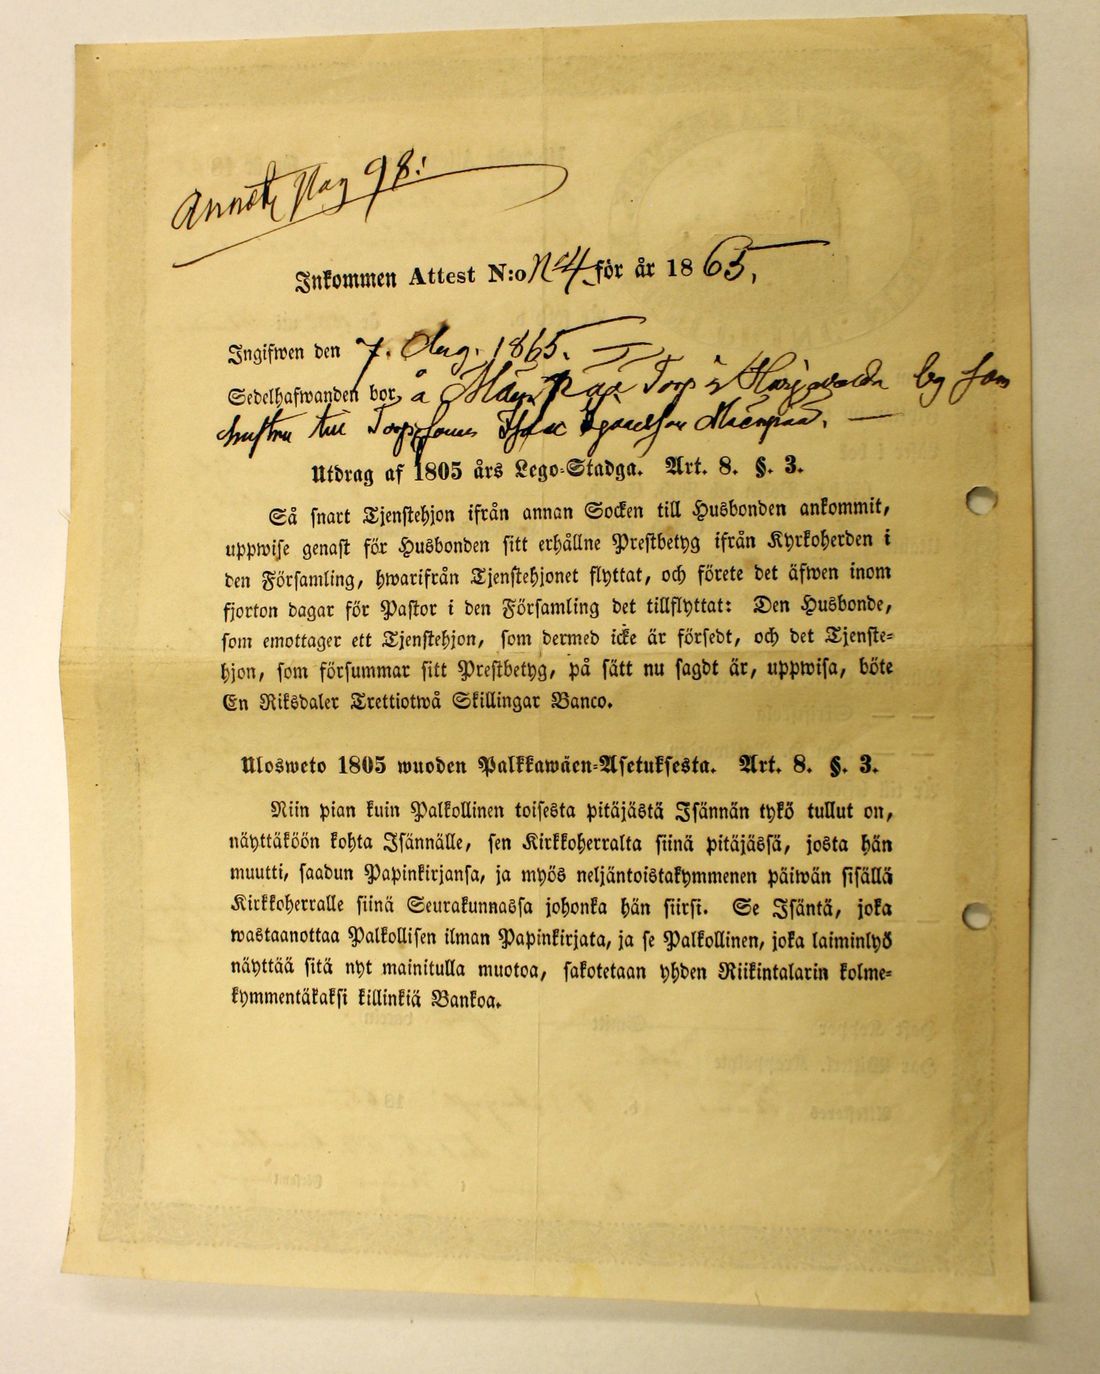 Pag 98:
Inkommen Attest N:o No 4 för år 1865.
Ingifwen den 7. Aug. 1865.
Sedelhafwanden bor, å Torp i by som
hustru till Torp
Utdrag af 1805 års Lego-Stadga. Art. 8. §. 3.
Så snart Tjenstehjon ifrån annan Socken till Husbonden ankommit,
uppwise genast för Husbonden sitt erhållne Prestbetyg ifrån Kyrkoherden i
den Församling, hwarifrån Tjenstehjonet flyttat, och förete det äfwen inom
fjorton dagar för Pastor i den Församling det tillflyttat: Den Husbonde,
som emottager ett Tjenstehjon, som dermed icke är försedt, och det Tjenste-
hjon, som försummar sitt Prestbetyg, på sätt nu sagdt är, uppwisa, böte
En Riksdaler Trettiotwå Skillingar Banco.
Ulosweto 1805 wuoden Palkkawäen-Asetuksesta. Art. 8. §. 3.
Niin pian kuin Palkollinen toisesta pitäjästä Isännän tykö tullut on,
näyttäköön kohta Isännälle, sen Kirkkoherralta siinä pitäjässä, josta hän
muutti, saadun Papinkirjansa, ja myös neljäntoistakymmenen päiwän sisällä
Kirkkoherralle siinä Seurakunnassa johonka hän siirsi. Se Isäntä, joka
wastaanottaa Palkollisen ilman Papinkirjata, ja se Palkollinen, joka laiminlyö
näyttää sitä nyt mainitulla muotoa, sakotetaan yhden Riikintalarin kolme-
kymmentäkaksi killinkiä Bankoa.